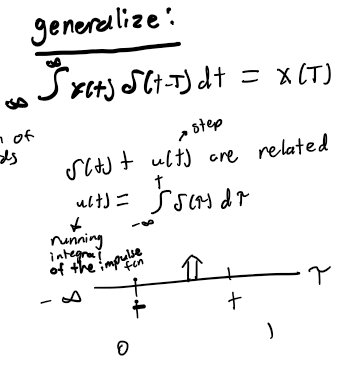 generalize:
∞
∫ x(t) δ(t-T) dt = x(T)
∞
n of
step
δ(t) + u(t) are related
t
u(t) = ∫ δ(τ) dτ
-∞
running
integral
of the impulse
fcn
-∞ τ
t t
0 1